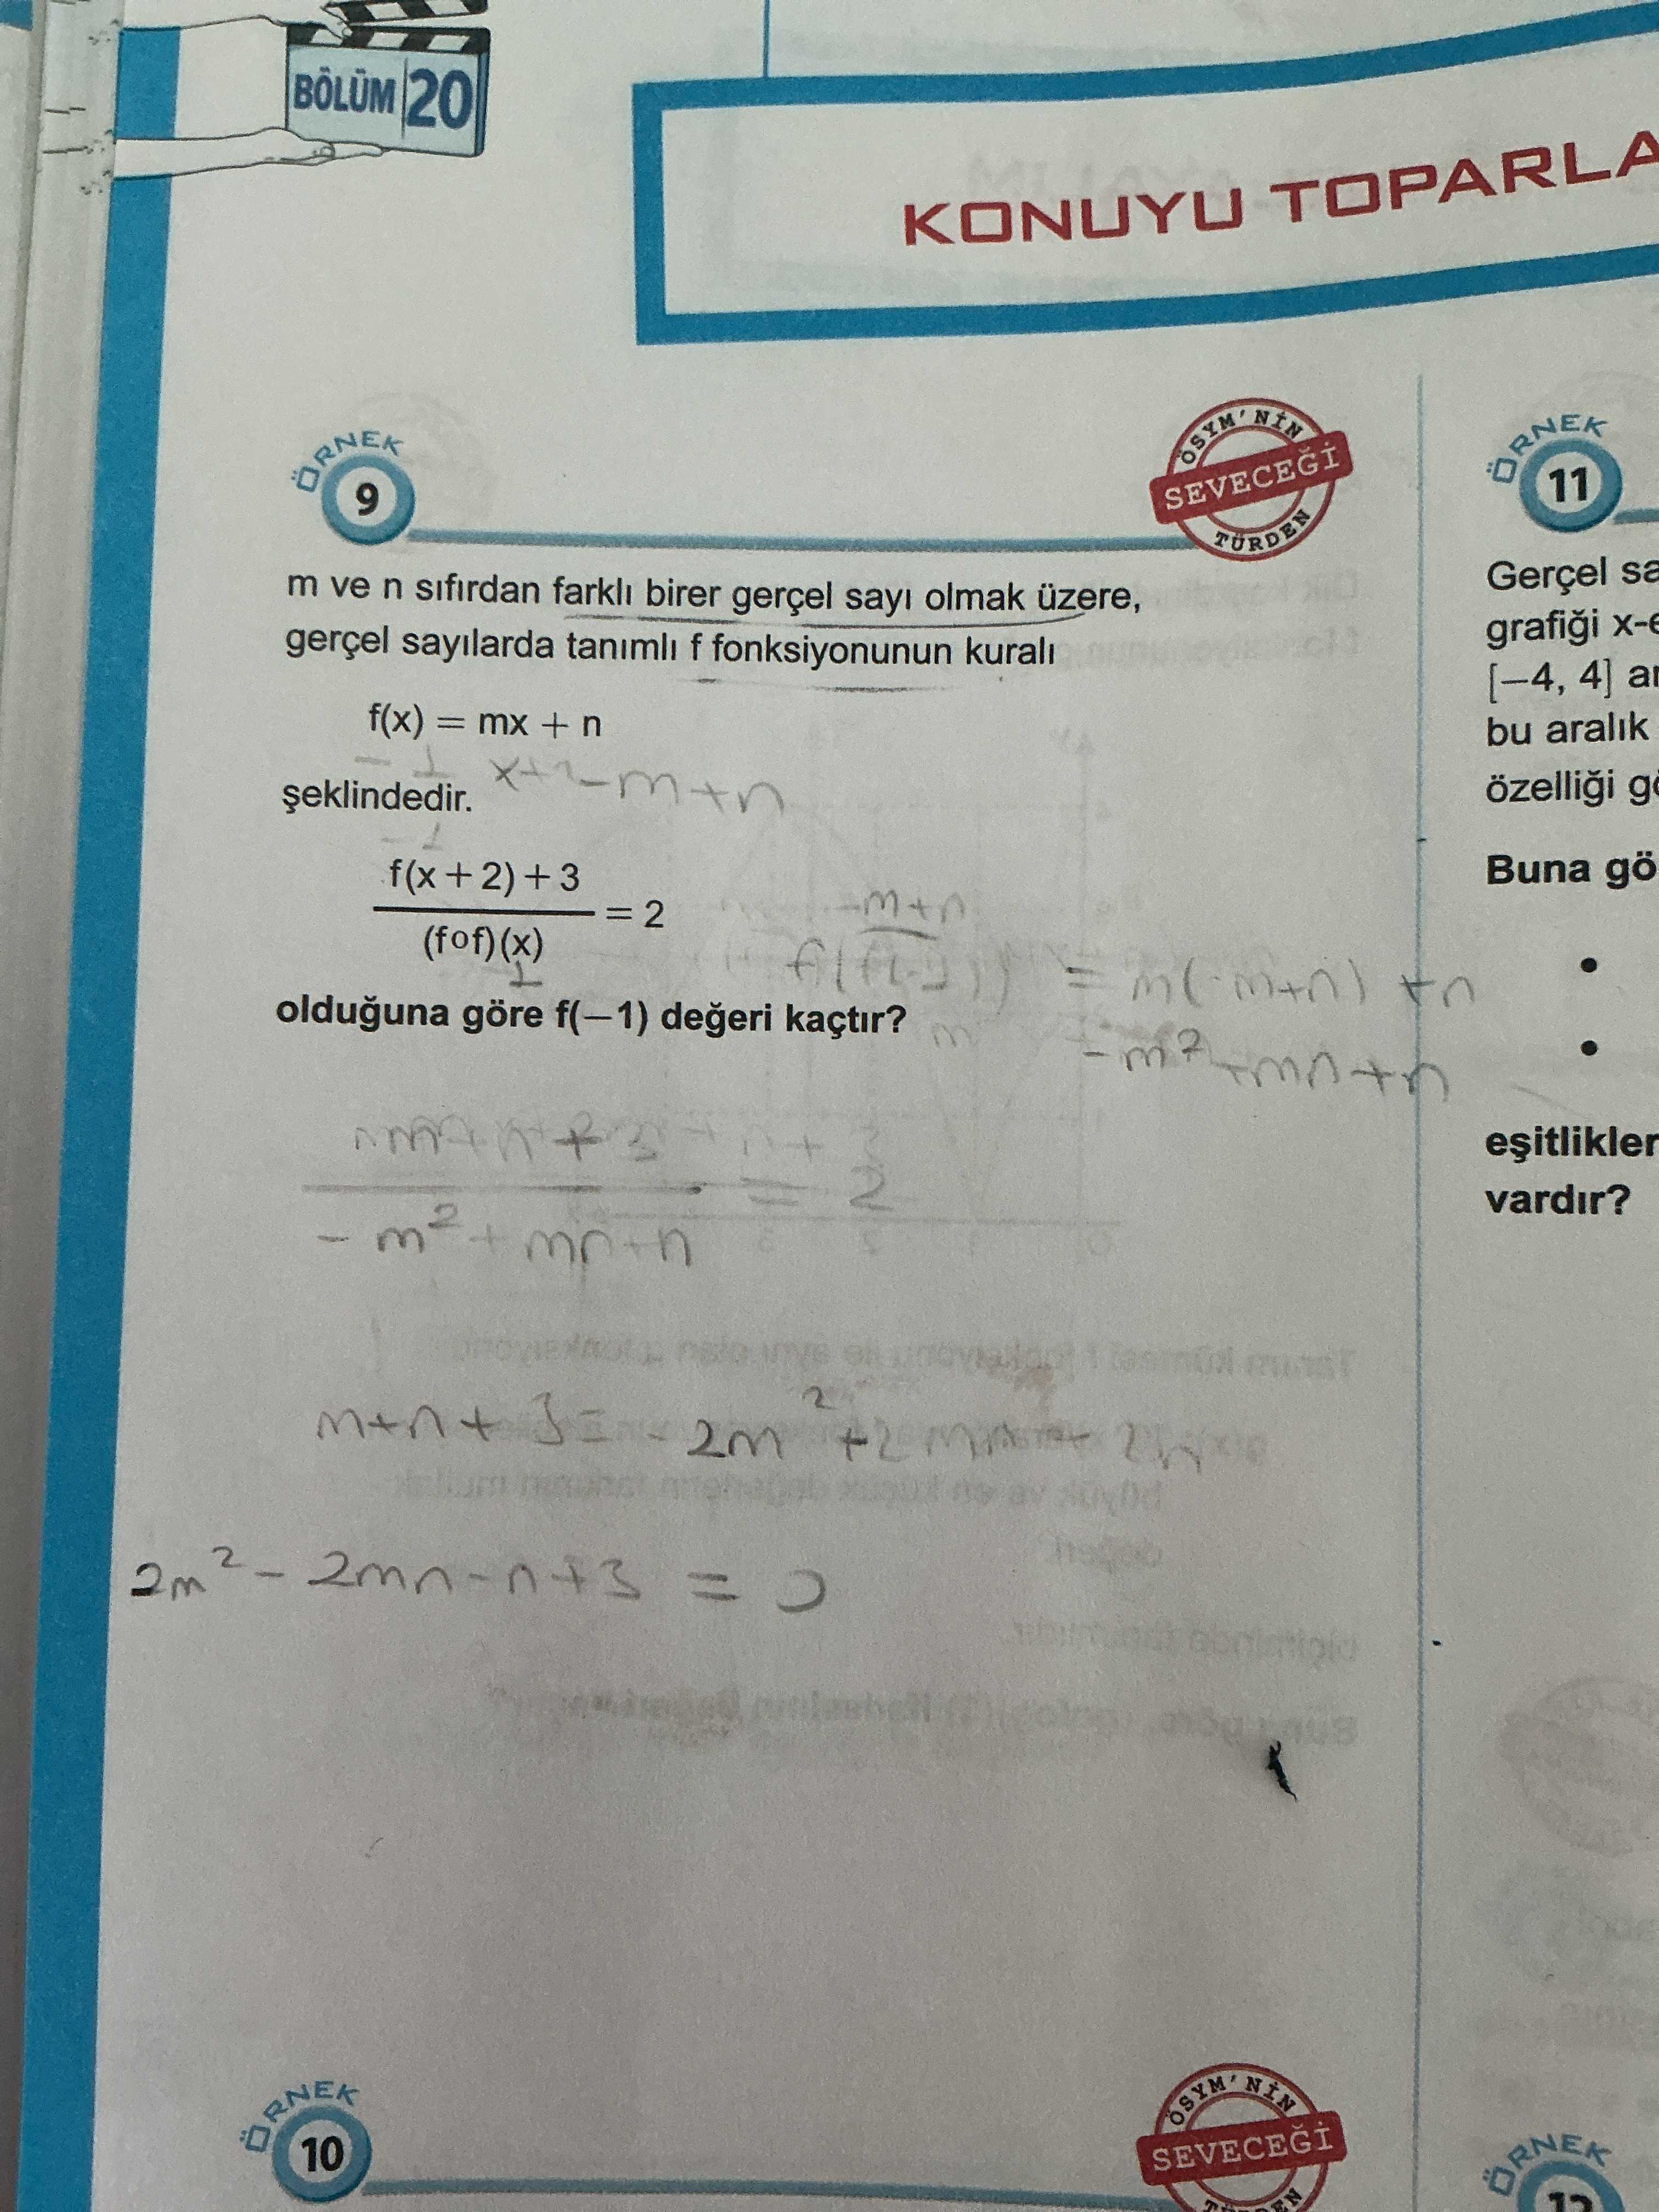 BÖLÜM 20
KONUYU TOPARLA
ÖRNEK
9
ÖSYM'NİN
SEVECEĞİ
TÜRDEN
m ve n sıfırdan farklı birer gerçel sayı olmak üzere,
gerçel sayılarda tanımlı f fonksiyonunun kuralı
f(x) = mx + n
-1
-m+n
şeklindedir.
-1
f(x + 2) + 3
(fof)(x)
= 2
olduğuna göre f(−1) değeri kaçtır?
-m+n
= m(-m+n) +n
-m²+mn+n
= 2
-m²+mn+n
m+n+3=-2m²+2mn+2n
2m²-2mn-n+3 = 0
ÖRNEK
10
ÖSYM'NİN
SEVECEĞİ
ÖRNEK
11
Gerçel
grafiği
[−4, 4]
bu aralık
özelliği
Buna
•
•
eşitlikler
vardır?
ÖRNEK